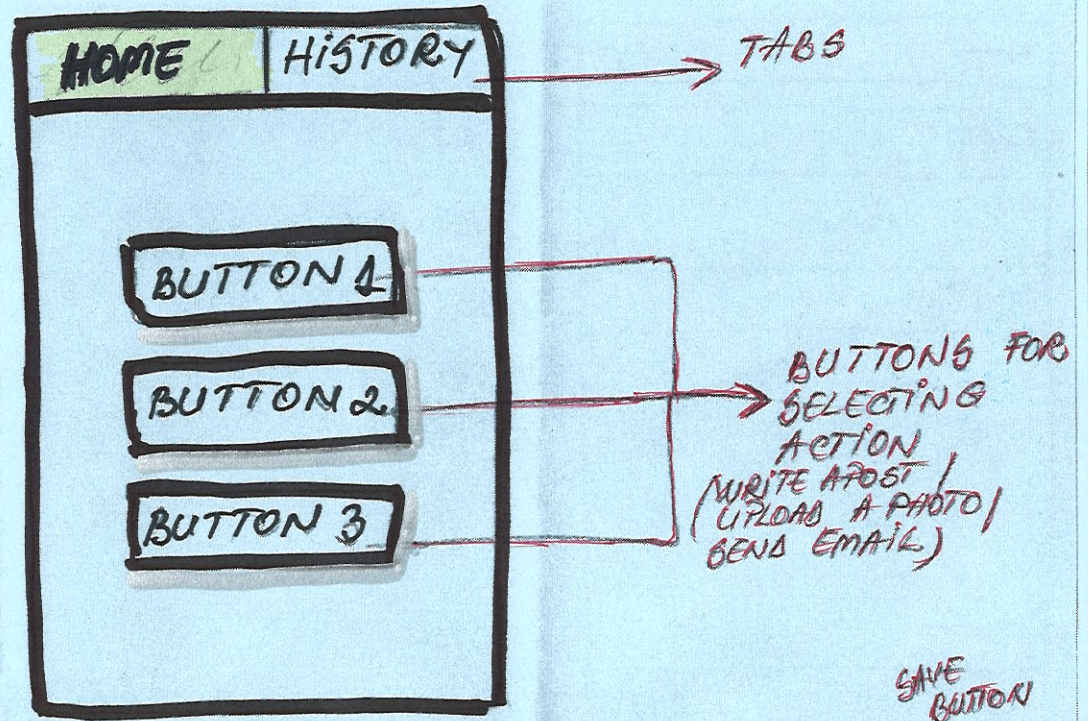 HOME HISTORY
TABS
BUTTON 1
BUTTON 2
BUTTON 3
BUTTONS FOR
SELECTING
ACTION
(WRITE A POST /
UPLOAD A PHOTO /
SEND EMAIL)
SAVE
BUTTON